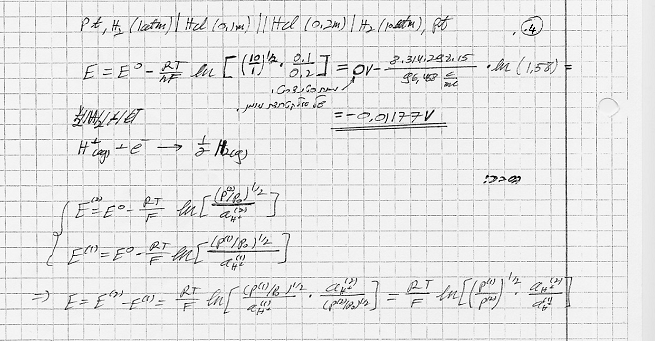 .4)
Pt, H₂ (1atm) | HCl (0,1m) || HCl (0,2m) | H₂ (10atm), Pt
E = E⁰ - RT/nF ln [(10/1)^1/2 · 0.1/0.2] = 0V - 8.314·298.15 / 96,48 · ln (1,58) =
= -0,01177V
H⁺(aq) + e⁻ → 1/2 H₂(g)
E⁽²⁾ = E⁰ - RT/F ln [(P⁽²⁾/P₀)^1/2 / a_H⁺⁽²⁾]
E⁽¹⁾ = E⁰ - RT/F ln [(P⁽¹⁾/P₀)^1/2 / a_H⁺⁽¹⁾]
⇒ E = E⁽²⁾ - E⁽¹⁾ = RT/F ln [(P⁽¹⁾/P₀)^1/2 / a_H⁺⁽¹⁾ · a_H⁺⁽²⁾ / (P⁽²⁾/P₀)^1/2] = RT/F ln [(P⁽¹⁾/P⁽²⁾)^1/2 · a_H⁺⁽²⁾ / a_H⁺⁽¹⁾]